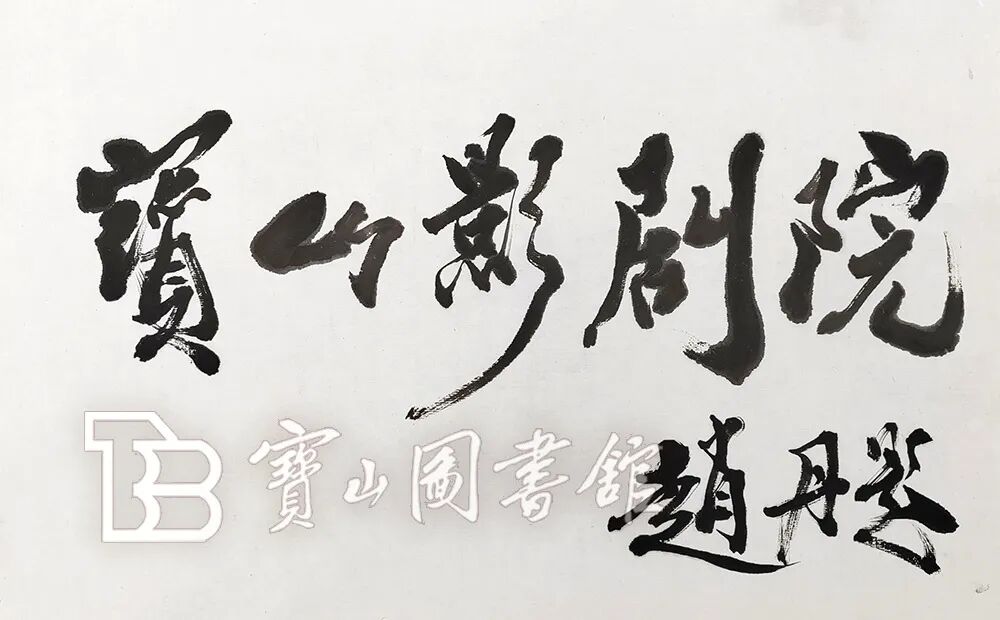 寶山影剧院
趙丹题
寶山圖書館